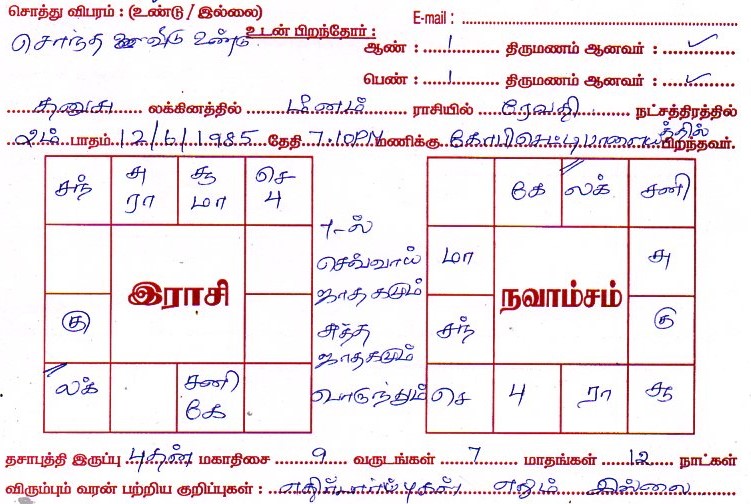 சொத்து விபரம் : (உண்டு / இல்லை) E-mail :
சொந்த வீடு உண்டு. உடன் பிறந்தோர் : ஆண் : 1 திருமணம் ஆனவர் : ✓
பெண் : 1 திருமணம் ஆனவர் : ✓
தனுசு லக்கினத்தில் மீனம் ராசியில் ரேவதி நட்சத்திரத்தில்
2ம் பாதம் 12/6/1985 தேதி 7.10PM மணிக்கு கோபிசெட்டிபாளையத்தில் பிறந்தவர்.
சந் சு ரா சூ மா செ 4
கே லக் சனி
7-ல்
செவ்வாய்
மா சு
ஜாதகமும்
இராசி நவாம்சம்
குரு சுத்த சந் குரு
ஜாதகமும்
லக் சனி கே பொருந்தும் செ 4 ரா சூ
தசாபுத்தி இருப்பு புதன் மகாதிசை 9 வருடங்கள் 7 மாதங்கள் 12 நாட்கள்
விரும்பும் வரன் பற்றிய குறிப்புகள் : எதிர்பார்ப்புகள் ஏதும் இல்லை